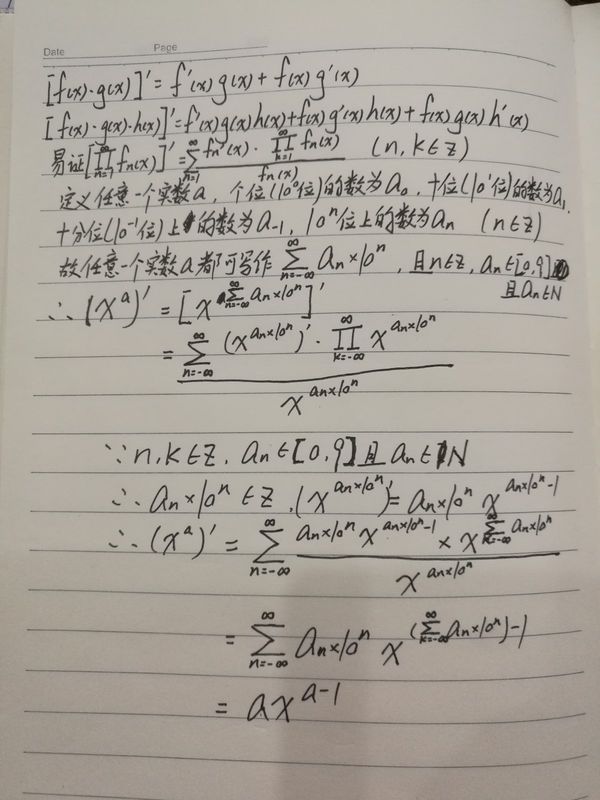 Date Page
[f(x)·g(x)]′ = f′(x)g(x) + f(x)g′(x)
[f(x)·g(x)·h(x)]′ = f′(x)g(x)h(x) + f(x)g′(x)h(x) + f(x)g(x)h′(x)
易证[∏_{n=1}^{∞} f_n(x)]′ = ∑_{n=1}^{∞} f_n′(x)·∏_{k=1}^{∞} f_n(x) / f_n(x) (n,k∈Z)
定义任意一个实数a,个位(10⁰位)的数为a₀,十位(10¹位)的数为a₁,
十分位(10⁻¹位)上的数为a₋₁,10ⁿ位上的数为aₙ (n∈Z)
故任意一个实数a都可写作 ∑_{n=-∞}^{∞} aₙ×10ⁿ,且n∈Z,aₙ∈[0,9]
且aₙ∈N
∴(x^a)′ = [x^{∑_{n=-∞}^{∞} aₙ×10ⁿ}]′
= ∑_{n=-∞}^{∞} (x^{aₙ×10ⁿ})′·∏_{k=-∞}^{∞} x^{aₙ×10ⁿ} / x^{aₙ×10ⁿ}
∵n,k∈Z,aₙ∈[0,9]且aₙ∈N
∴aₙ×10ⁿ∈Z,(x^{aₙ×10ⁿ})′ = aₙ×10ⁿ x^{aₙ×10ⁿ-1}
∴(x^a)′ = ∑_{n=-∞}^{∞} aₙ×10ⁿ x^{aₙ×10ⁿ-1} × x^{∑_{k=-∞}^{∞} aₙ×10ⁿ} / x^{aₙ×10ⁿ}
= ∑_{n=-∞}^{∞} aₙ×10ⁿ x^{(∑_{k=-∞}^{∞} aₙ×10ⁿ)-1}
= ax^{a-1}